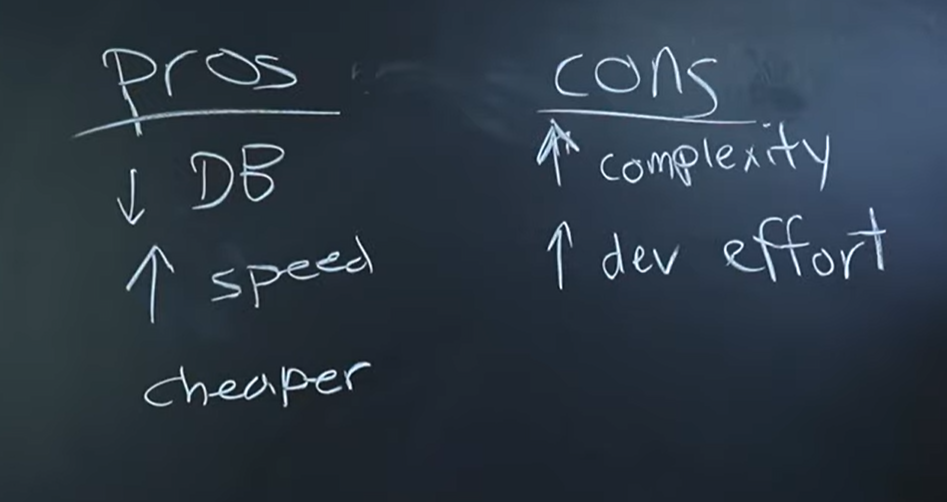 pros
↓ DB
↑ speed
cheaper
cons
↑ complexity
↑ dev effort